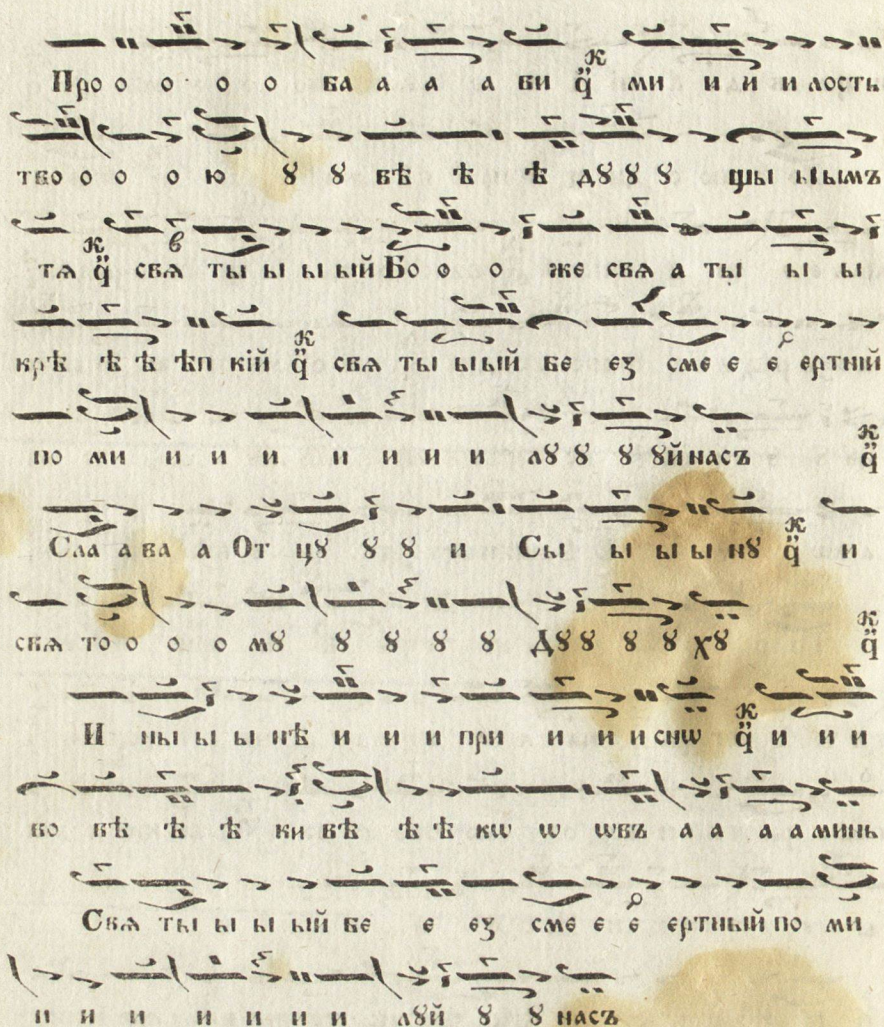 Про о о о о ба а а а ви к҃ ми и и и лость
тво о о о ю ꙋ ꙋ вѣ ѣ ѣ дꙋ ꙋ ꙋ щы ы ымъ
тѧ свѧ ты ы ы ый Бо о о же свѧ а ты ы ы
крѣ ѣ ѣ ѣп кїй свѧ ты ы ый бе еꙁ сме е е ертный
по ми и и и и и и и лꙋ ꙋ ꙋ ꙋй насъ
Сла а ва а От цꙋ ꙋ ꙋ и Сы ы ы ы нꙋ и
свѧ то о о о мꙋ ꙋ ꙋ ꙋ ꙋ Дꙋ ꙋ ꙋ ꙋ хꙋ
И ны ы ы нѣ и и и при и и и снѡ и и и
во вѣ ѣ ѣ ки вѣ ѣ ѣ кѡ ѡ ѡвъ а а а а минь
Свѧ ты ы ы ый бе е еꙁ сме е е ертный по ми
и и и и и и и лꙋй ꙋ ꙋ насъ